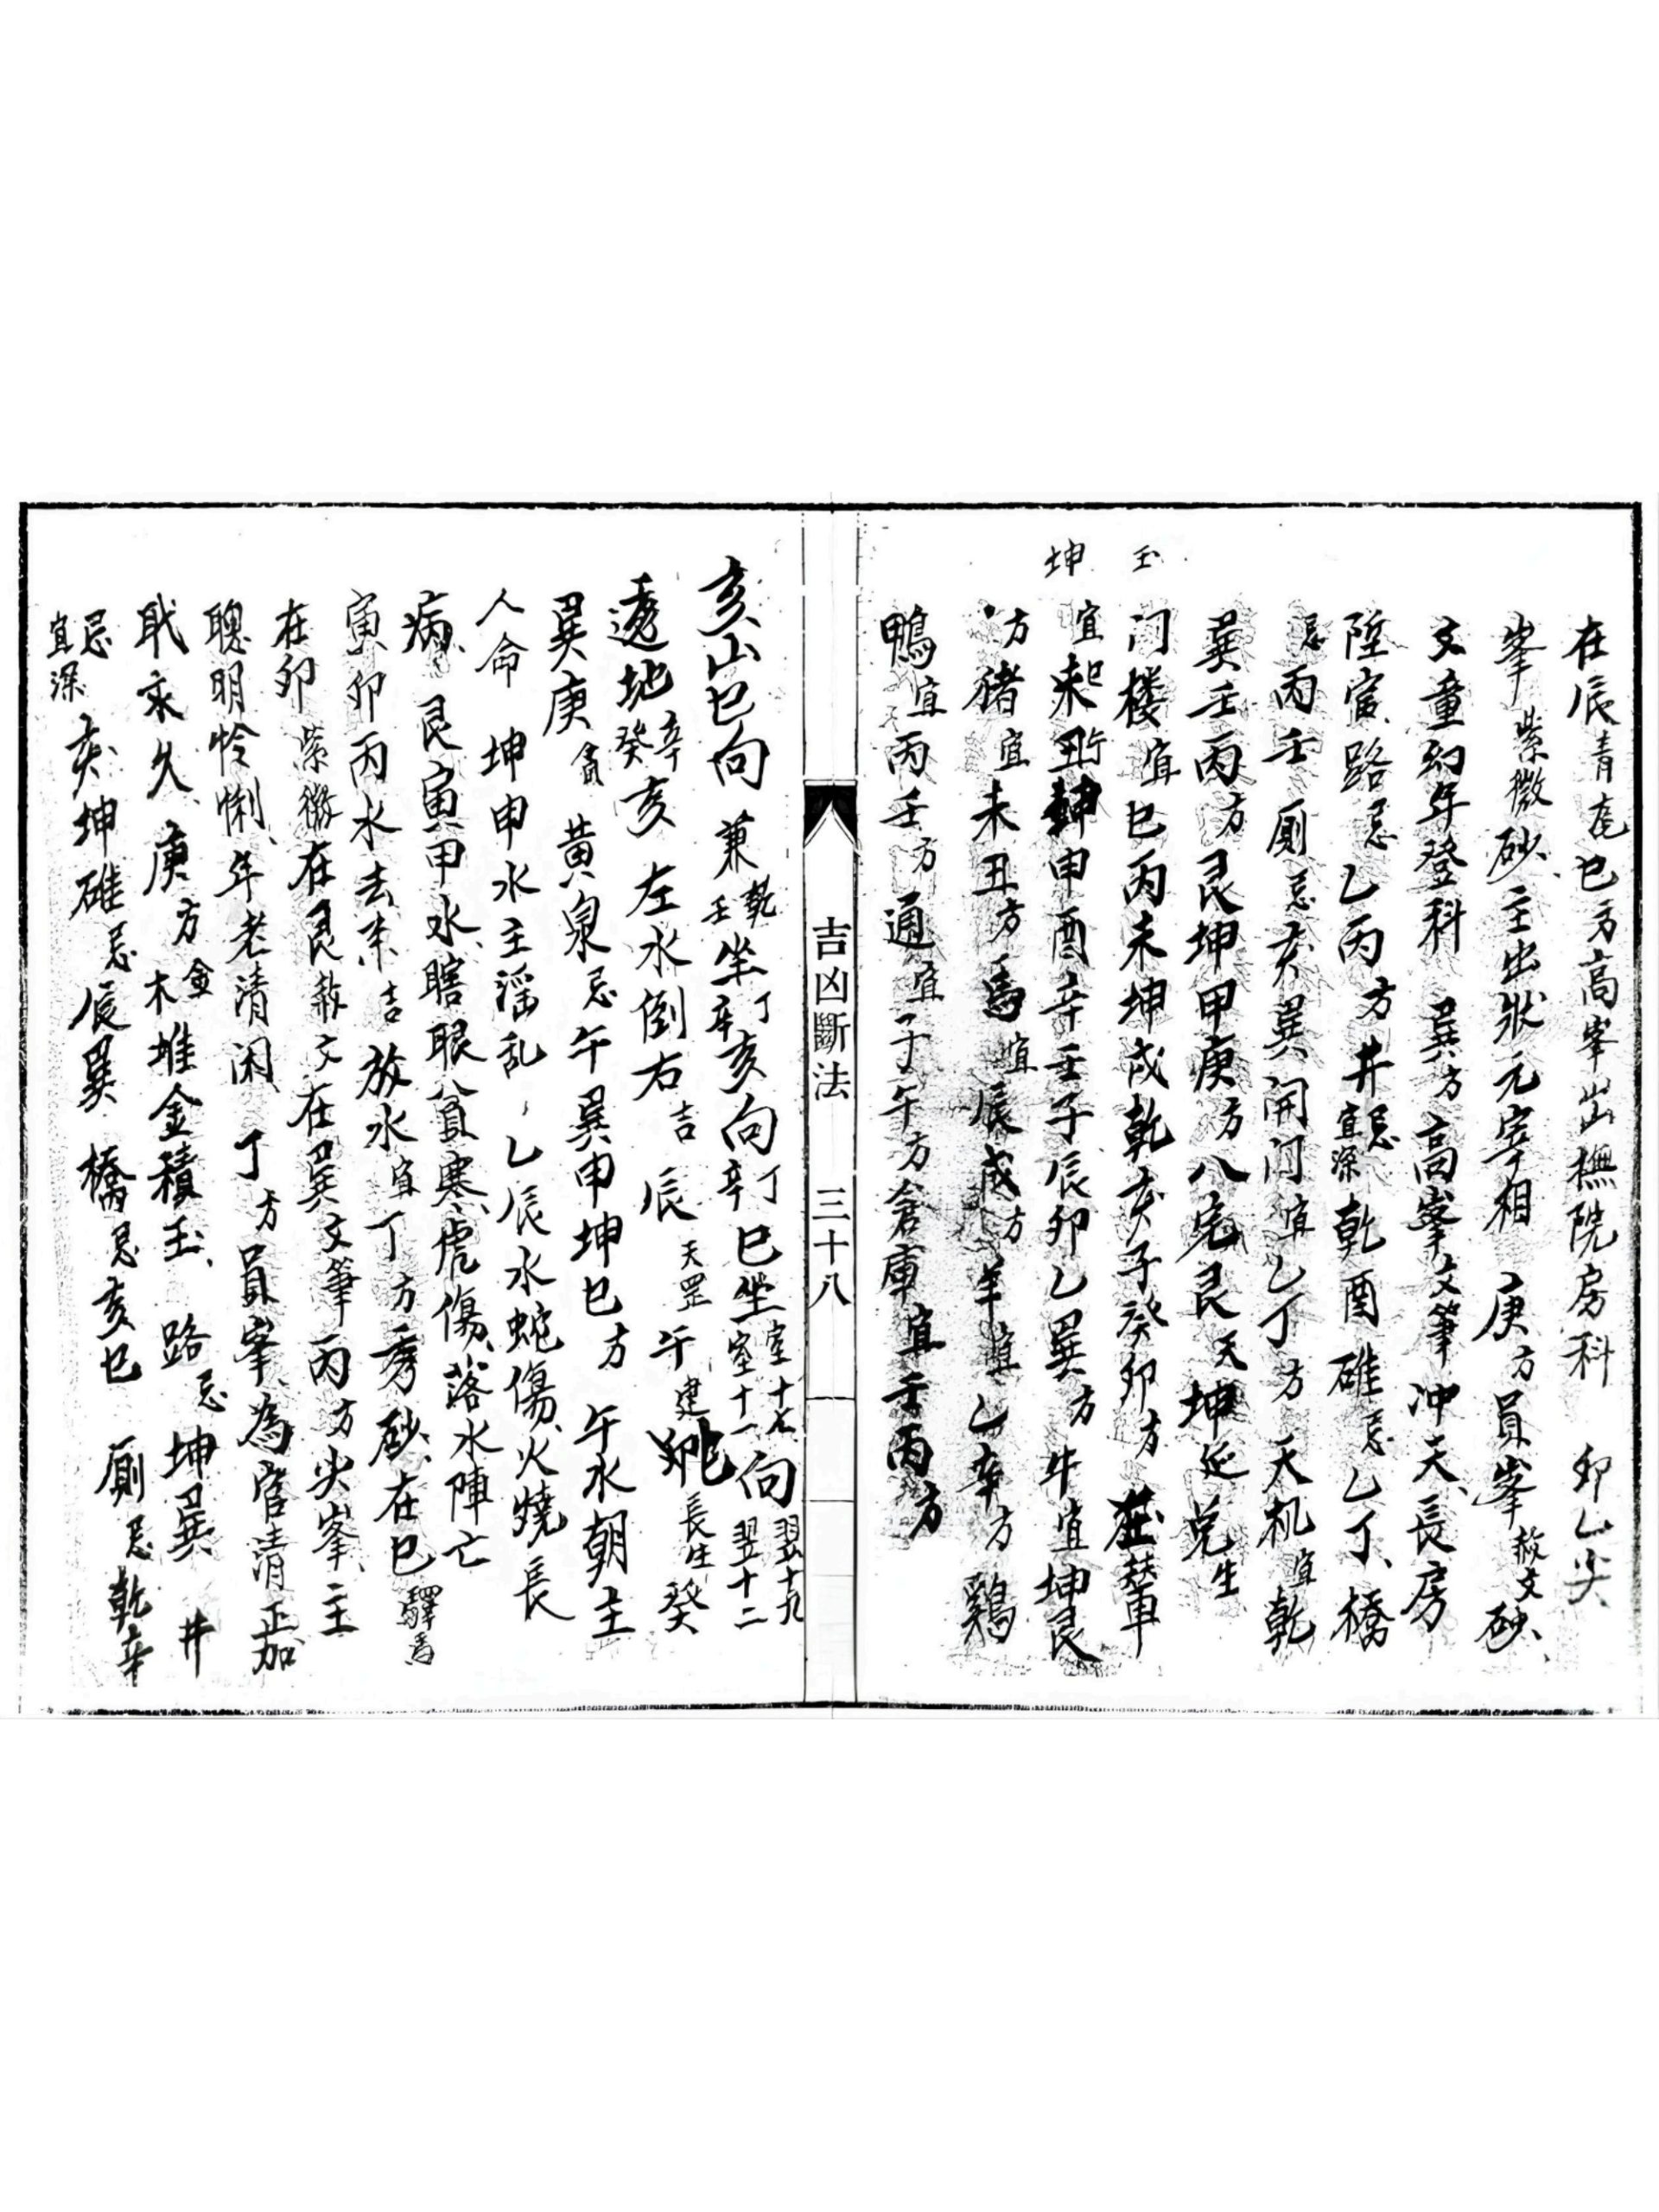 玉
坤
在辰青龙巳方高峯出撫院房科 卯乙尖
峯紫微砂主出狀元宰相 庚方員峯赦文砂
文童幼年登科 巽方高峯文筆冲天長房
陞官路忌乙丙方井忌宜深乾酉碓忌乙丁橋
忌丙壬厠忌亥巽開门宜乙丁方天机宜乾
巽壬丙方艮坤甲庚方八宅艮天坤延兌生
门楼宜巳丙未坤戌乾亥子癸卯方
宜丑坤申酉辛壬子辰卯乙巽方牛宜坤艮
方猪宜未丑方馬宜辰戌方羊宜乙辛方鷄
鴨宜丙壬方通宜子午方倉庫宜壬丙方
吉凶斷法 三十八
亥山巳向 兼乾壬坐丁辛亥向丁辛巳坐室十七室十一向翌十九翌十二
透地辛癸亥左水倒右吉辰天罡午建 長生癸
巽庚貪黄泉忌午巽申坤巳方 午水朝主
人命 坤申水主淫乱 乙辰水蛇傷火燒長
病 艮寅甲水瞎眼貧寒虎傷落水陣亡
寅卯丙水去来吉放水宜丁方秀砂在巳驛馬
在卯紫微在艮赦文在巽文筆丙方尖峯主
聰明怜悧年老清闲 丁方員峯為官清正加
耿永久庚方金木堆金積玉 路忌坤巽 井
忌宜深亥坤碓忌辰巽橋忌亥巳 厠忌乾辛